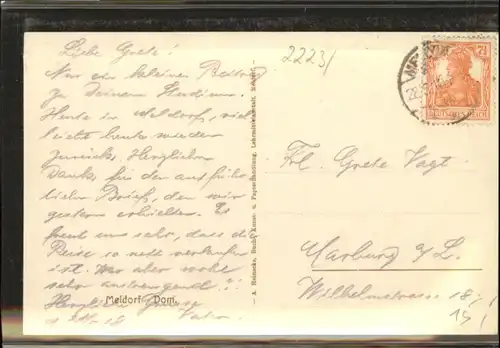 Liebe Grete!
Nur ein kleiner Beitrag
zu Deinem Studium.
Heute in Meldorf, viel
leicht heute wieder
zurück. Herzlichen
Dank für den ausführ
lichen Brief, den wir
gestern erhielten. Es
freut uns sehr, dass die
Reise so nett verlaufen
ist. War aber wohl
sehr anstrengend!?
Herzliche Grüsse
Vater.
Meldorf Dom.
A. Heinecke, Buch-, Kunst- u. Papierhandlung, Lehrmittelanstalt,
2223/
7½
DEUTSCHES REICH
Frl. Grete Vagt
Marburg a/L.
Wilhelmstrasse 18/
15/